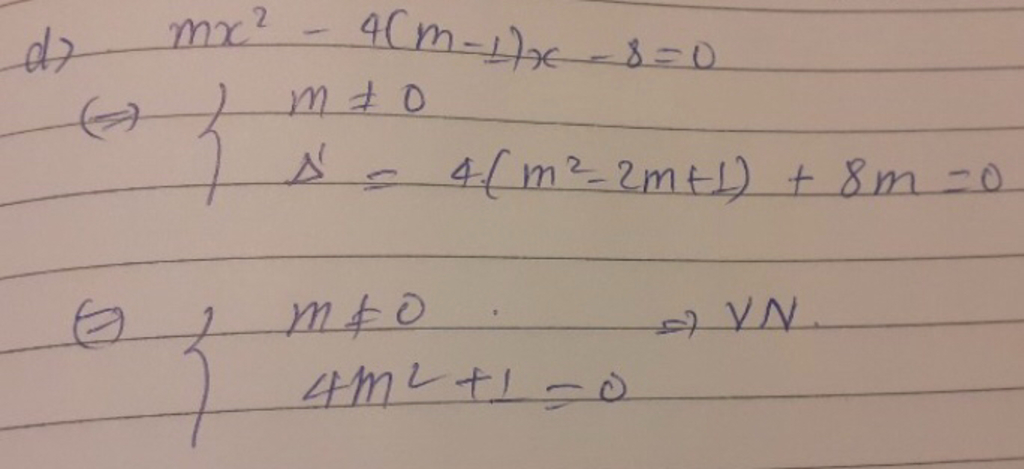 d) mx² - 4(m-1)x - 8 = 0
(=) { m ≠ 0
Δ' = 4(m² - 2m + 1) + 8m = 0
(=) { m ≠ 0 . => VN.
4m² + 1 = 0